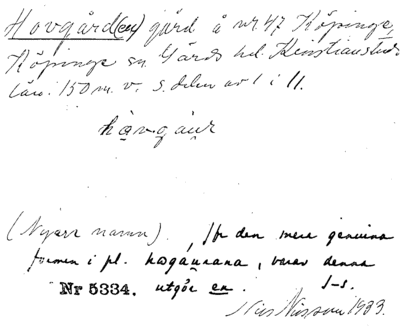 Hovgård(en) gård å nr 47 Köpinge,
Köpinge sn Gärds hd. Kristianstads
län. 150 m. v. s. delen av l i ll.
(Nyare namn). Jfr den mera genuina
formen i pl. , varav denna
Nr 5334. utgör en. J-s.
Nils Nilsson 1933.